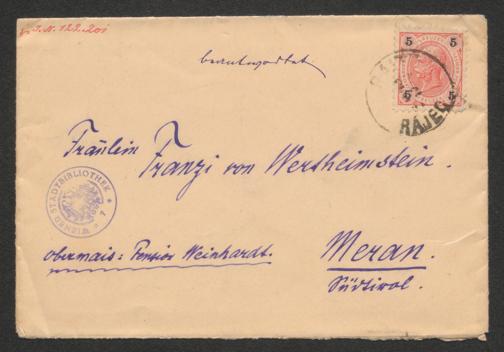 J.N. 122.201
beantwortet
5 5
5 5
RÁJEC
Fräulein
Franzi von Wertheimstein.
WIENER STADTBIBLIOTHEK
Obermais: Pension Weinhardt.
Meran.
Südtirol.